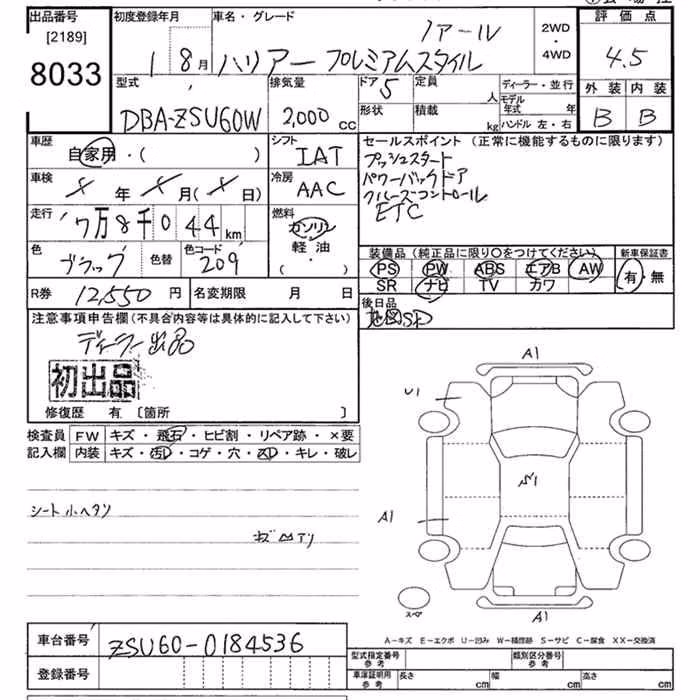 出品番号 初度登録年月 車名・グレード 評価点
[2189] ノアール 2WD
8033 1 8月 ハリアー プレミアムスタイル ・ 4WD 4.5
型式 排気量 ドア 5 定員 人 ディーラー・並行 外装 内装
DBA-ZSU60W 2,000 cc 形状 積載 kg モデル年式 年 B B
ハンドル 左・右
車歴 シフト セールスポイント (正常に機能するものに限ります)
自家用・( ) IAT プッシュスタート
車検 X 年 X 月(X 日) 冷房 AAC パワーバックドア
走行 '7万8千044km 燃料 クルーズコントロール
ガソリン ETC
軽油・( )
色 ブラック 色替 色コード 209 装備品 (純正品に限り○をつけてください) 新車保証書
PS PW ABS エアB AW 有・無
SR ナビ TV カワ
R券 12,550 円 名変期限 月 日 後日品
注意事項申告欄 (不具合内容等は具体的に記入して下さい) 地図SD
ディーラー出品
初出品
修復歴 有 〔箇所 〕
検査員 FW キズ・飛石・ヒビ割・リペア跡・×要
記入欄 内装 キズ・汚レ・コゲ・穴・スレ・キレ・破レ
A1
U1
A1
シート小ヘタリ
スペア
A1
A-キズ E-エクボ U-凹み W-補修跡 S-サビ C-腐食 XX-交換済
車台番号 ZSU60-0184536 型式指定番号 参考 類別区分番号 参考
登録番号 車庫証明用 参考 長さ cm 幅 cm 高さ cm